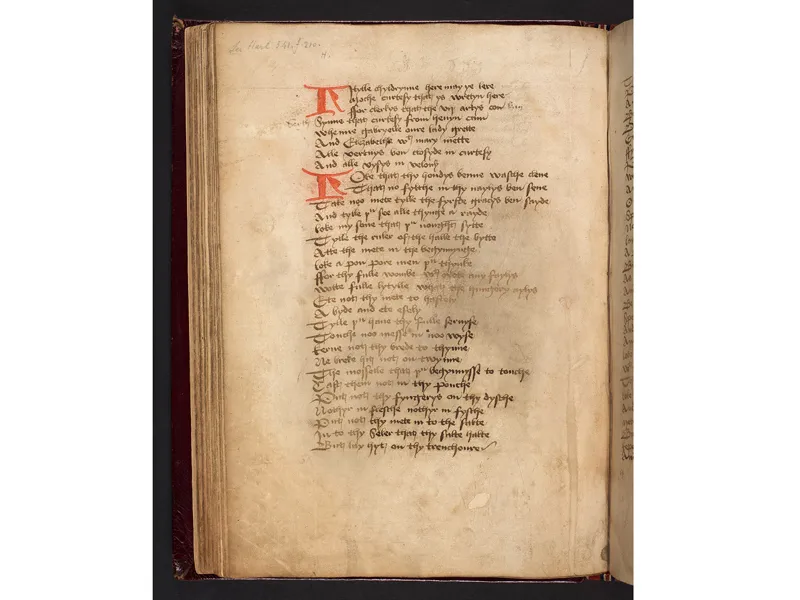 See Harl 541. f. 210.
Lytylle chyldrynne here may ye lere
Moche curtesy that ys wrytyn here
ffor clerkys that the vij artys con
Synne that curtesy from hevyn cum
Whenne gabryelle oure lady grette
And Elizabethe wt mary mette
Alle vertuys ben closyde in curtesy
And alle vysys in velony
Loke that thy hondys benne wasche clene
That no fylthe in thy naylys ben sene
Take noo mete tylle the fyrste gracys ben sayde
And tylle þu see alle thynge a rayde
loke my sone that þu nought sytte
Tylle the ruler of the halle the bytte
Atte the mete in the begynnynge
loke a pon pore men þu thynke
ffor thy fulle wombe any faytys
Wotte fulle lytylle what the hungery aylys
Ete not thy mete to hastely
A byde and ete esely
Tylle þu have thy fulle servyse
Touche noo messe in noo wyse
kerve not thy brede to thynne
Ne breke hit not on twynne
The mosselle that þu begynnysse to touche
Cast them not in thy pouche
Put not thy fyngerys on thy dysche
Nothyr in flesche nothyr in fysche
Put not thy mete in to the salte
In to thy Seler that thy salte halte
But lay hyt on thy trenchoure